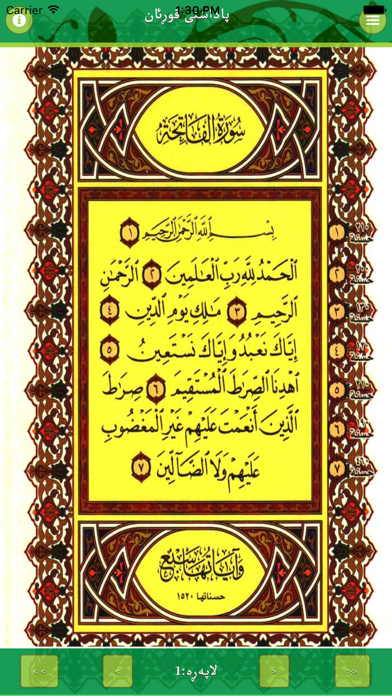 Carrier 1:30 PM
پاداشتی قورئان
سُورَةُ الفَاتِحَةِ
بِسْمِ ٱللَّهِ ٱلرَّحْمَٰنِ ٱلرَّحِيمِ ١
ٱلْحَمْدُ لِلَّهِ رَبِّ ٱلْعَٰلَمِينَ ٢ ٱلرَّحْمَٰنِ
ٱلرَّحِيمِ ٣ مَٰلِكِ يَوْمِ ٱلدِّينِ ٤
إِيَّاكَ نَعْبُدُ وَإِيَّاكَ نَسْتَعِينُ ٥
ٱهْدِنَا ٱلصِّرَٰطَ ٱلْمُسْتَقِيمَ ٦ صِرَٰطَ
ٱلَّذِينَ أَنْعَمْتَ عَلَيْهِمْ غَيْرِ ٱلْمَغْضُوبِ
عَلَيْهِمْ وَلَا ٱلضَّآلِّينَ ٧
١
٢
٣
٤
٥
٦
٧
وَآيَاتُهَا سَبْعٌ
حسناتها ١٥٢٠
<< < لاپەڕە:1 > >>